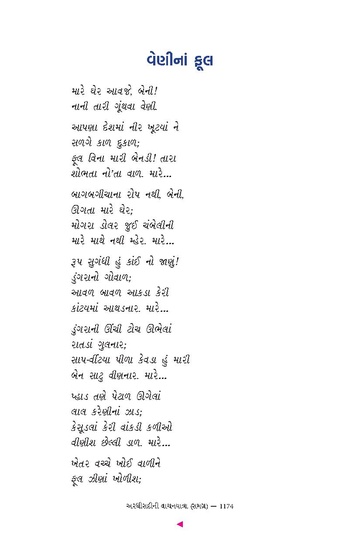 વેણીનાં ફૂલ
મારે ઘેર આવજે, બેની!
નાની તારી ગૂંથવા વેણી.
આપણા દેશમાં નીર ખૂટયાં ને
સળગે કાળ દુકાળ;
ફૂલ વિના મારી બેનડી! તારા
શોભતા નો'તા વાળ. મારે...
બાગબગીચાના રોપ નથી, બેની,
ઊગતા મારે ઘેર;
મોગરા ડોલર જૂઈ ચંબેલીની
મારે માથે નથી મ્હેર. મારે...
રૂપ સુગંધી હું કાંઈ નો જાણું!
ડુંગરાનો ગોવાળ;
આવળ બાવળ આકડા કેરી
કાંટયમાં આથડનાર. મારે...
ડુંગરાની ઊંચી ટોચ ઊભેલાં
રાતડાં ગુલનાર;
સાપ-વીંટયા પીળા કેવડા હું મારી
બેન સાટુ વીણનાર. મારે...
પ્હાડ તણે પેટાળ ઊગેલાં
લાલ કરેણીનાં ઝાડ;
કેસૂડલાં કેરી વાંકડી કળીઓ
વીણીશ છેલ્લી ડાળ. મારે...
ખેતર વચ્ચે ખોઈ વાળીને
ફૂલ ઝીણાં ખોળીશ;
અરધીસદીની વાચનયાત્રા (સમગ્ર) — 1174